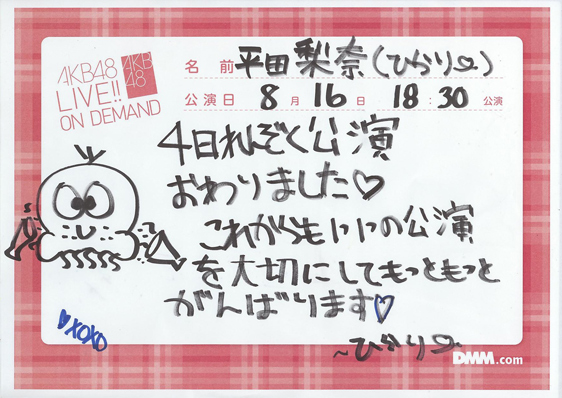 AKB48
LIVE!!
ON DEMAND
AKB
48
名 前 平田梨奈(ひらり♡)
公演日 8 月 16 日 18 : 30 公演
4日れんぞく公演
おわりました♡
これからも1つ1つの公演
を大切にしてもっともっと
がんばります♡
~ひらり♡
♡XOXO
DMM.com